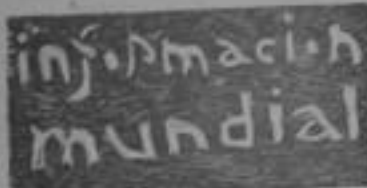 informacion
mundial